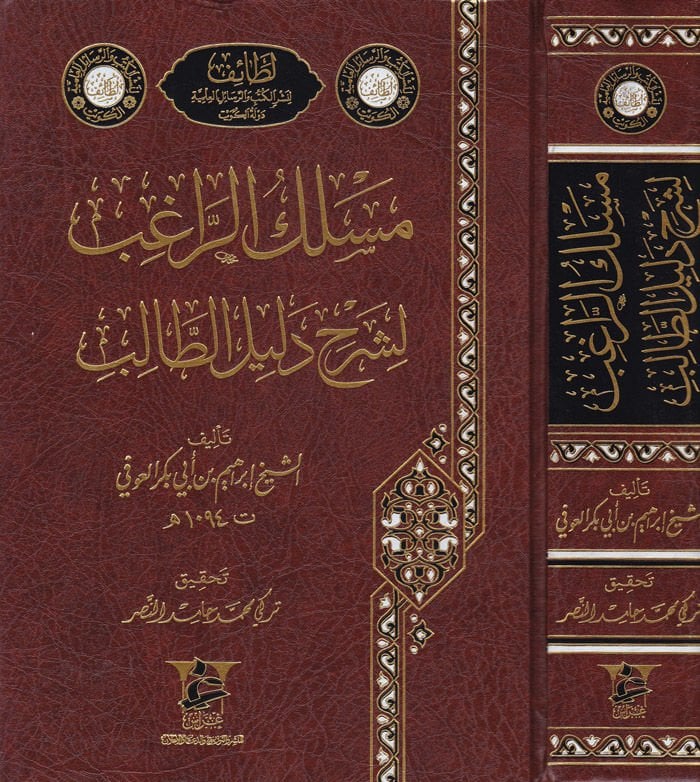 لطائف
لنشر الكتب والرسائل العلمية
دولة الكويت
لنشر الكتب والرسائل العلمية
لطائف
الكويت
لنشر الكتب والرسائل العلمية
لطائف
الكويت
مَسْلَكُ الرَّاغِبِ
لِشَرْحِ دَلِيْلِ الطَّالِبِ
تأليف
الشيخ ابراهيم بن أبي بكر العوفي
ت ١٠٩٤ هـ
تحقيق
تركي محمد حامد النصر
غراس
للنشر والتوزيع والدعاية والإعلان
لنشر الكتب والرسائل العلمية
لطائف
الكويت
مَسْلَكُ الرَّاغِبِ
لِشَرْحِ دَلِيْلِ الطَّالِبِ
تأليف
الشيخ ابراهيم بن أبي بكر العوفي
تحقيق
تركي محمد حامد النصر
غراس